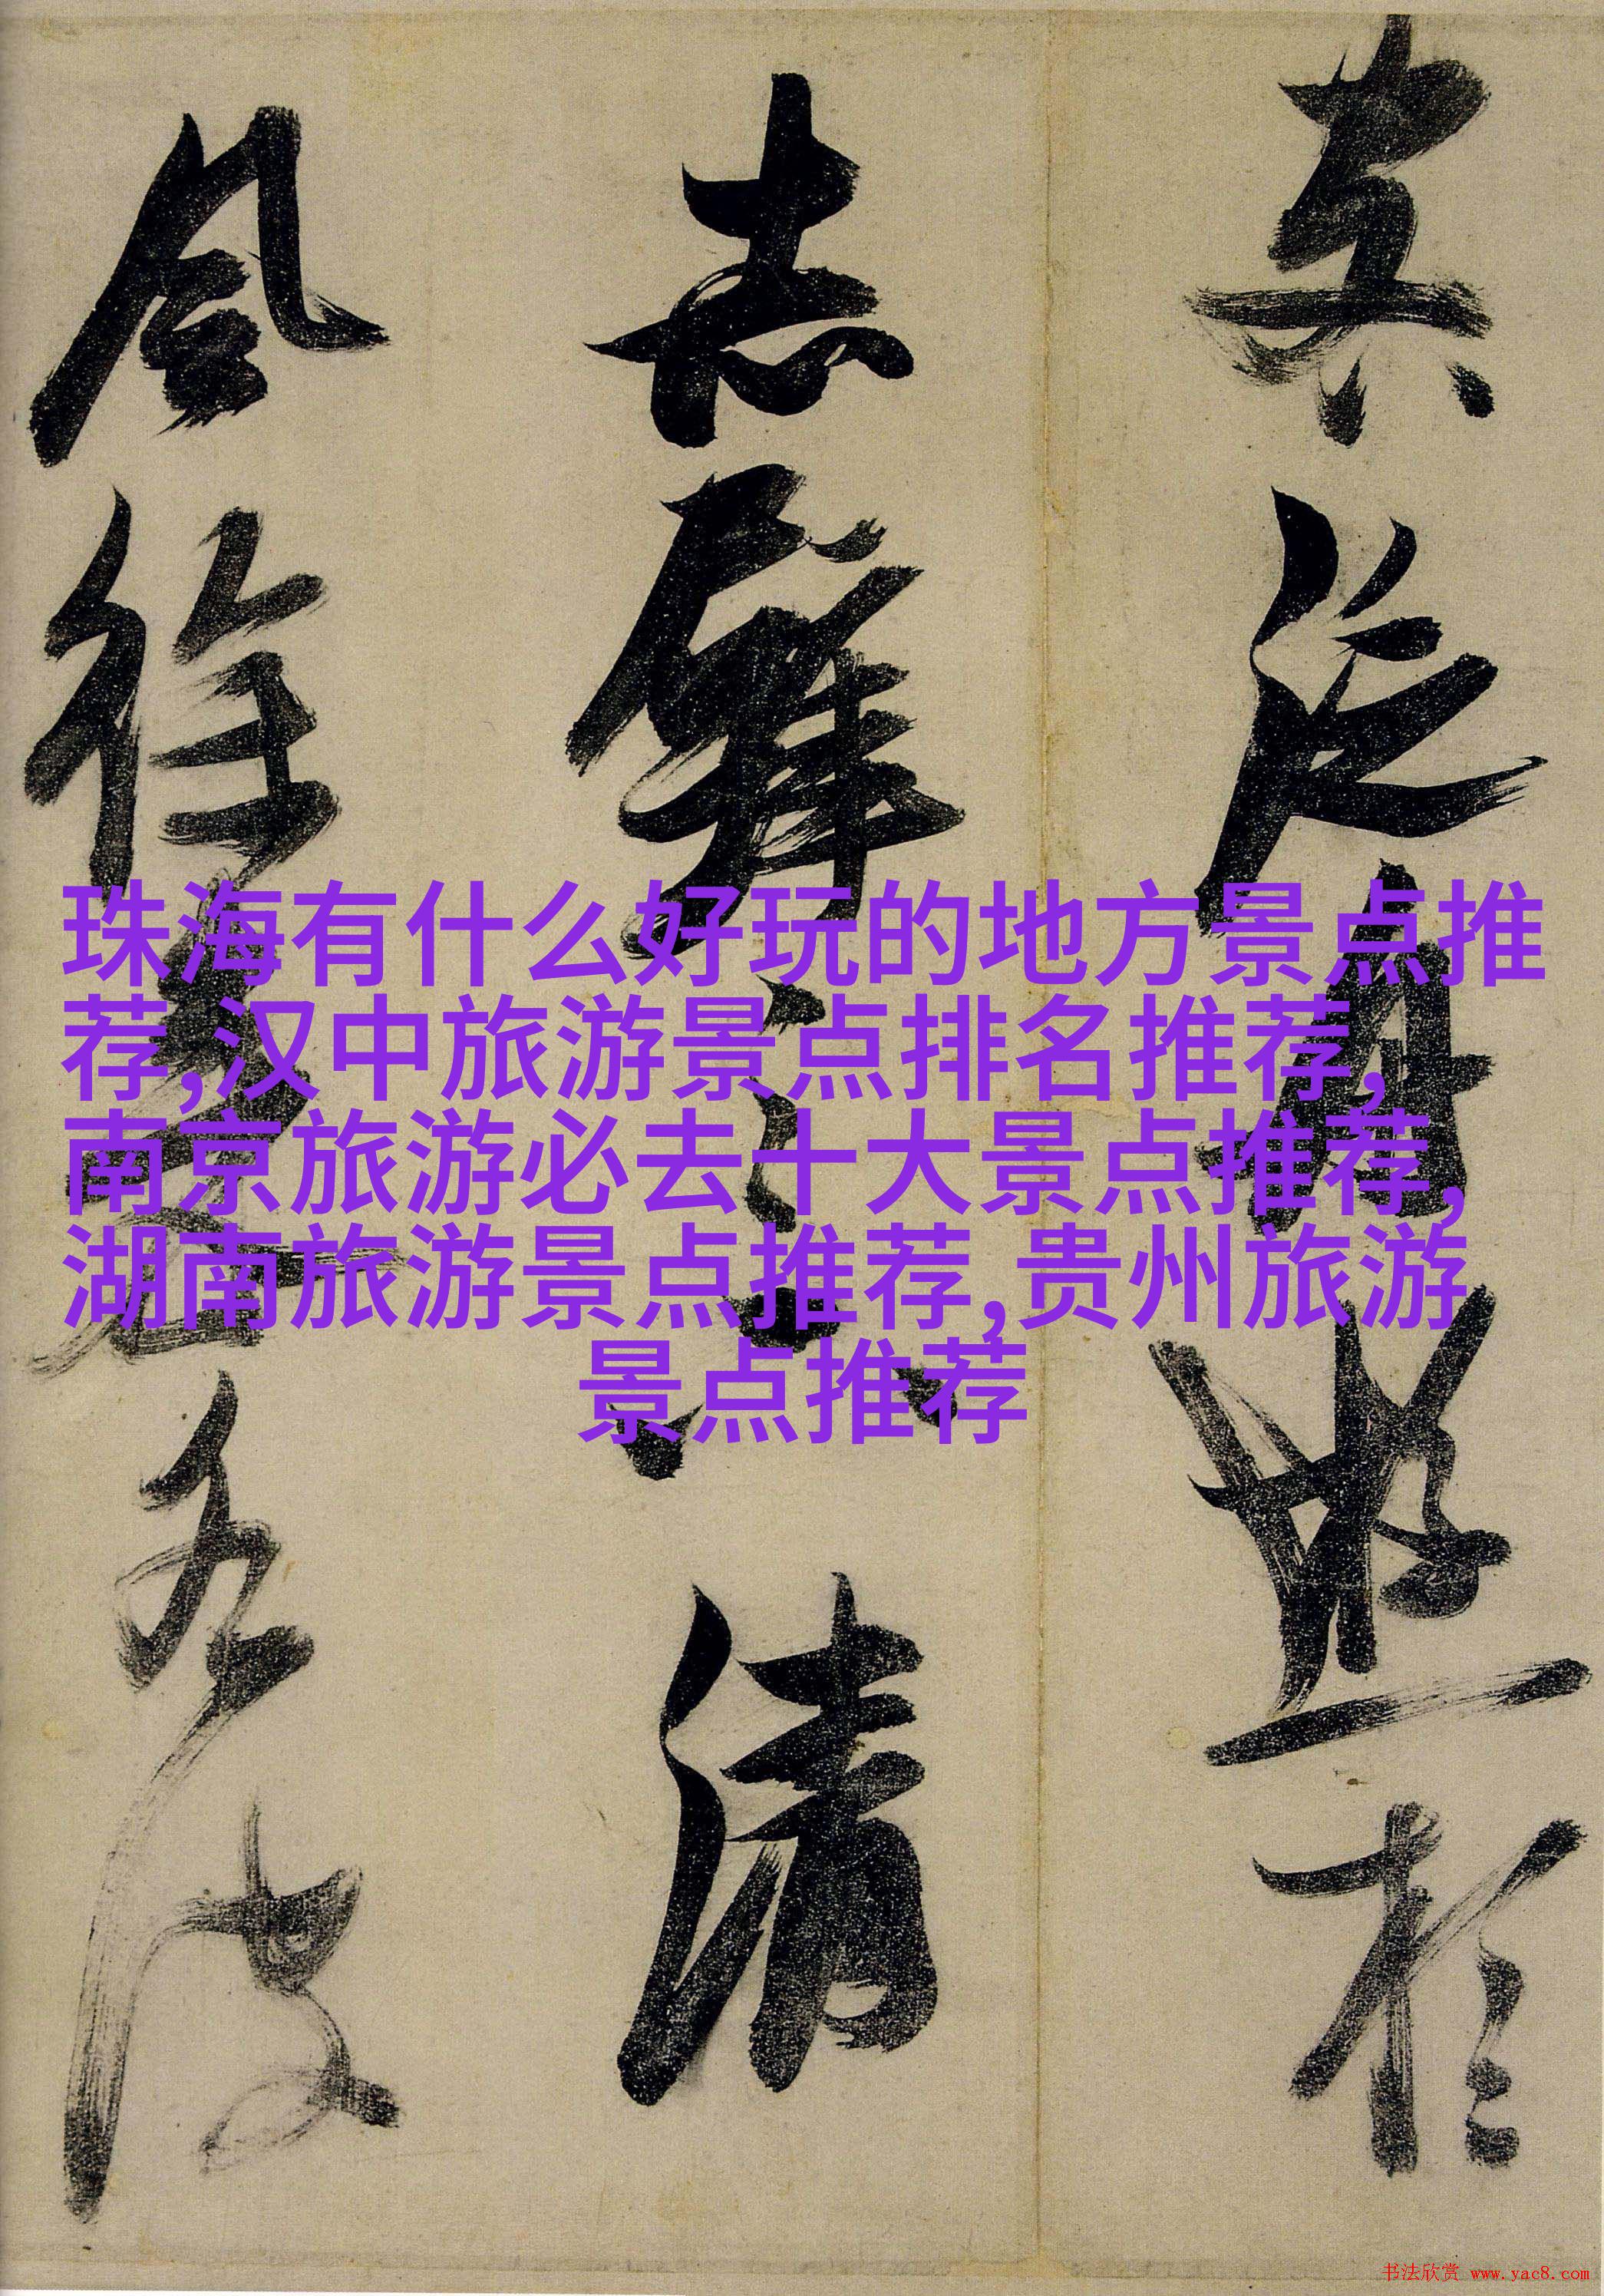 泛舟遊於
赤壁之下清
風徐來水波
珠海有什么好玩的地方景点推
荐,汉中旅游景点排名推荐,
南京旅游必去十大景点推荐,
湖南旅游景点推荐,贵州旅游
景点推荐
书法欣赏 www.yac8.com